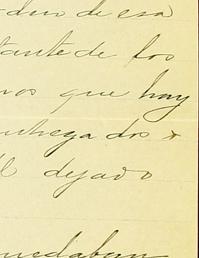 de esa
tante de los
nos que hay
entregados
dejado
quedaban